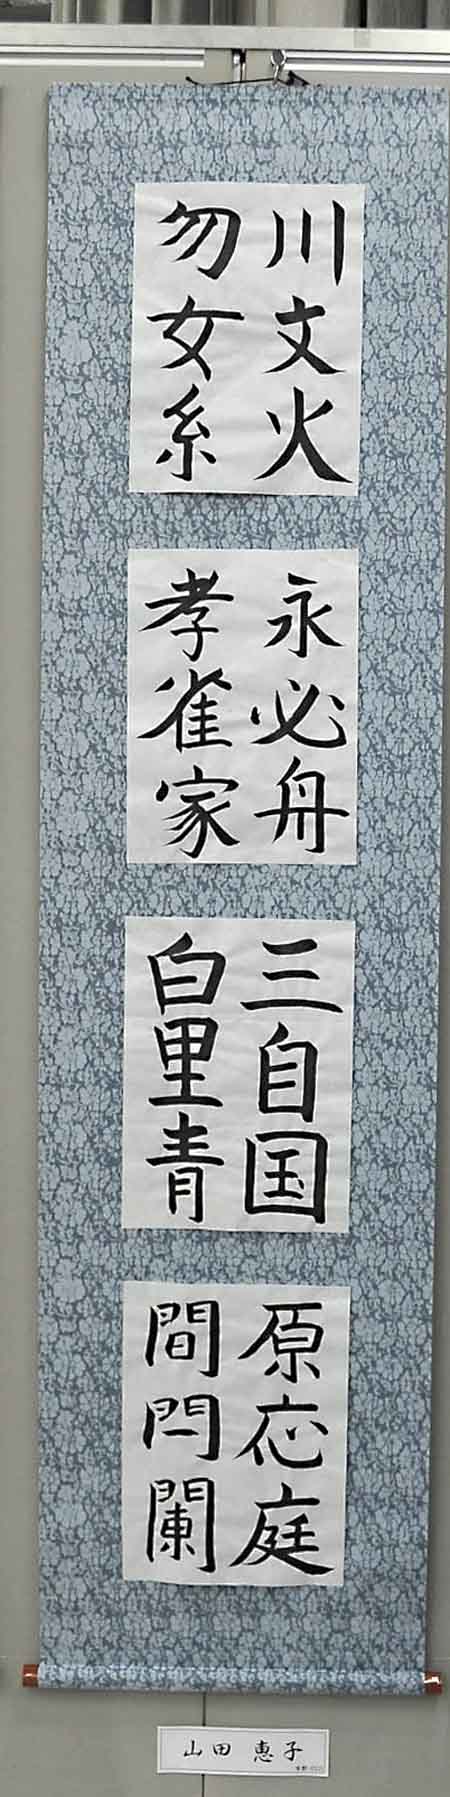 川文火
勿女系
永必舟
孝雀家
三自国
白里青
原応庭
間閂闌
山田 恵子